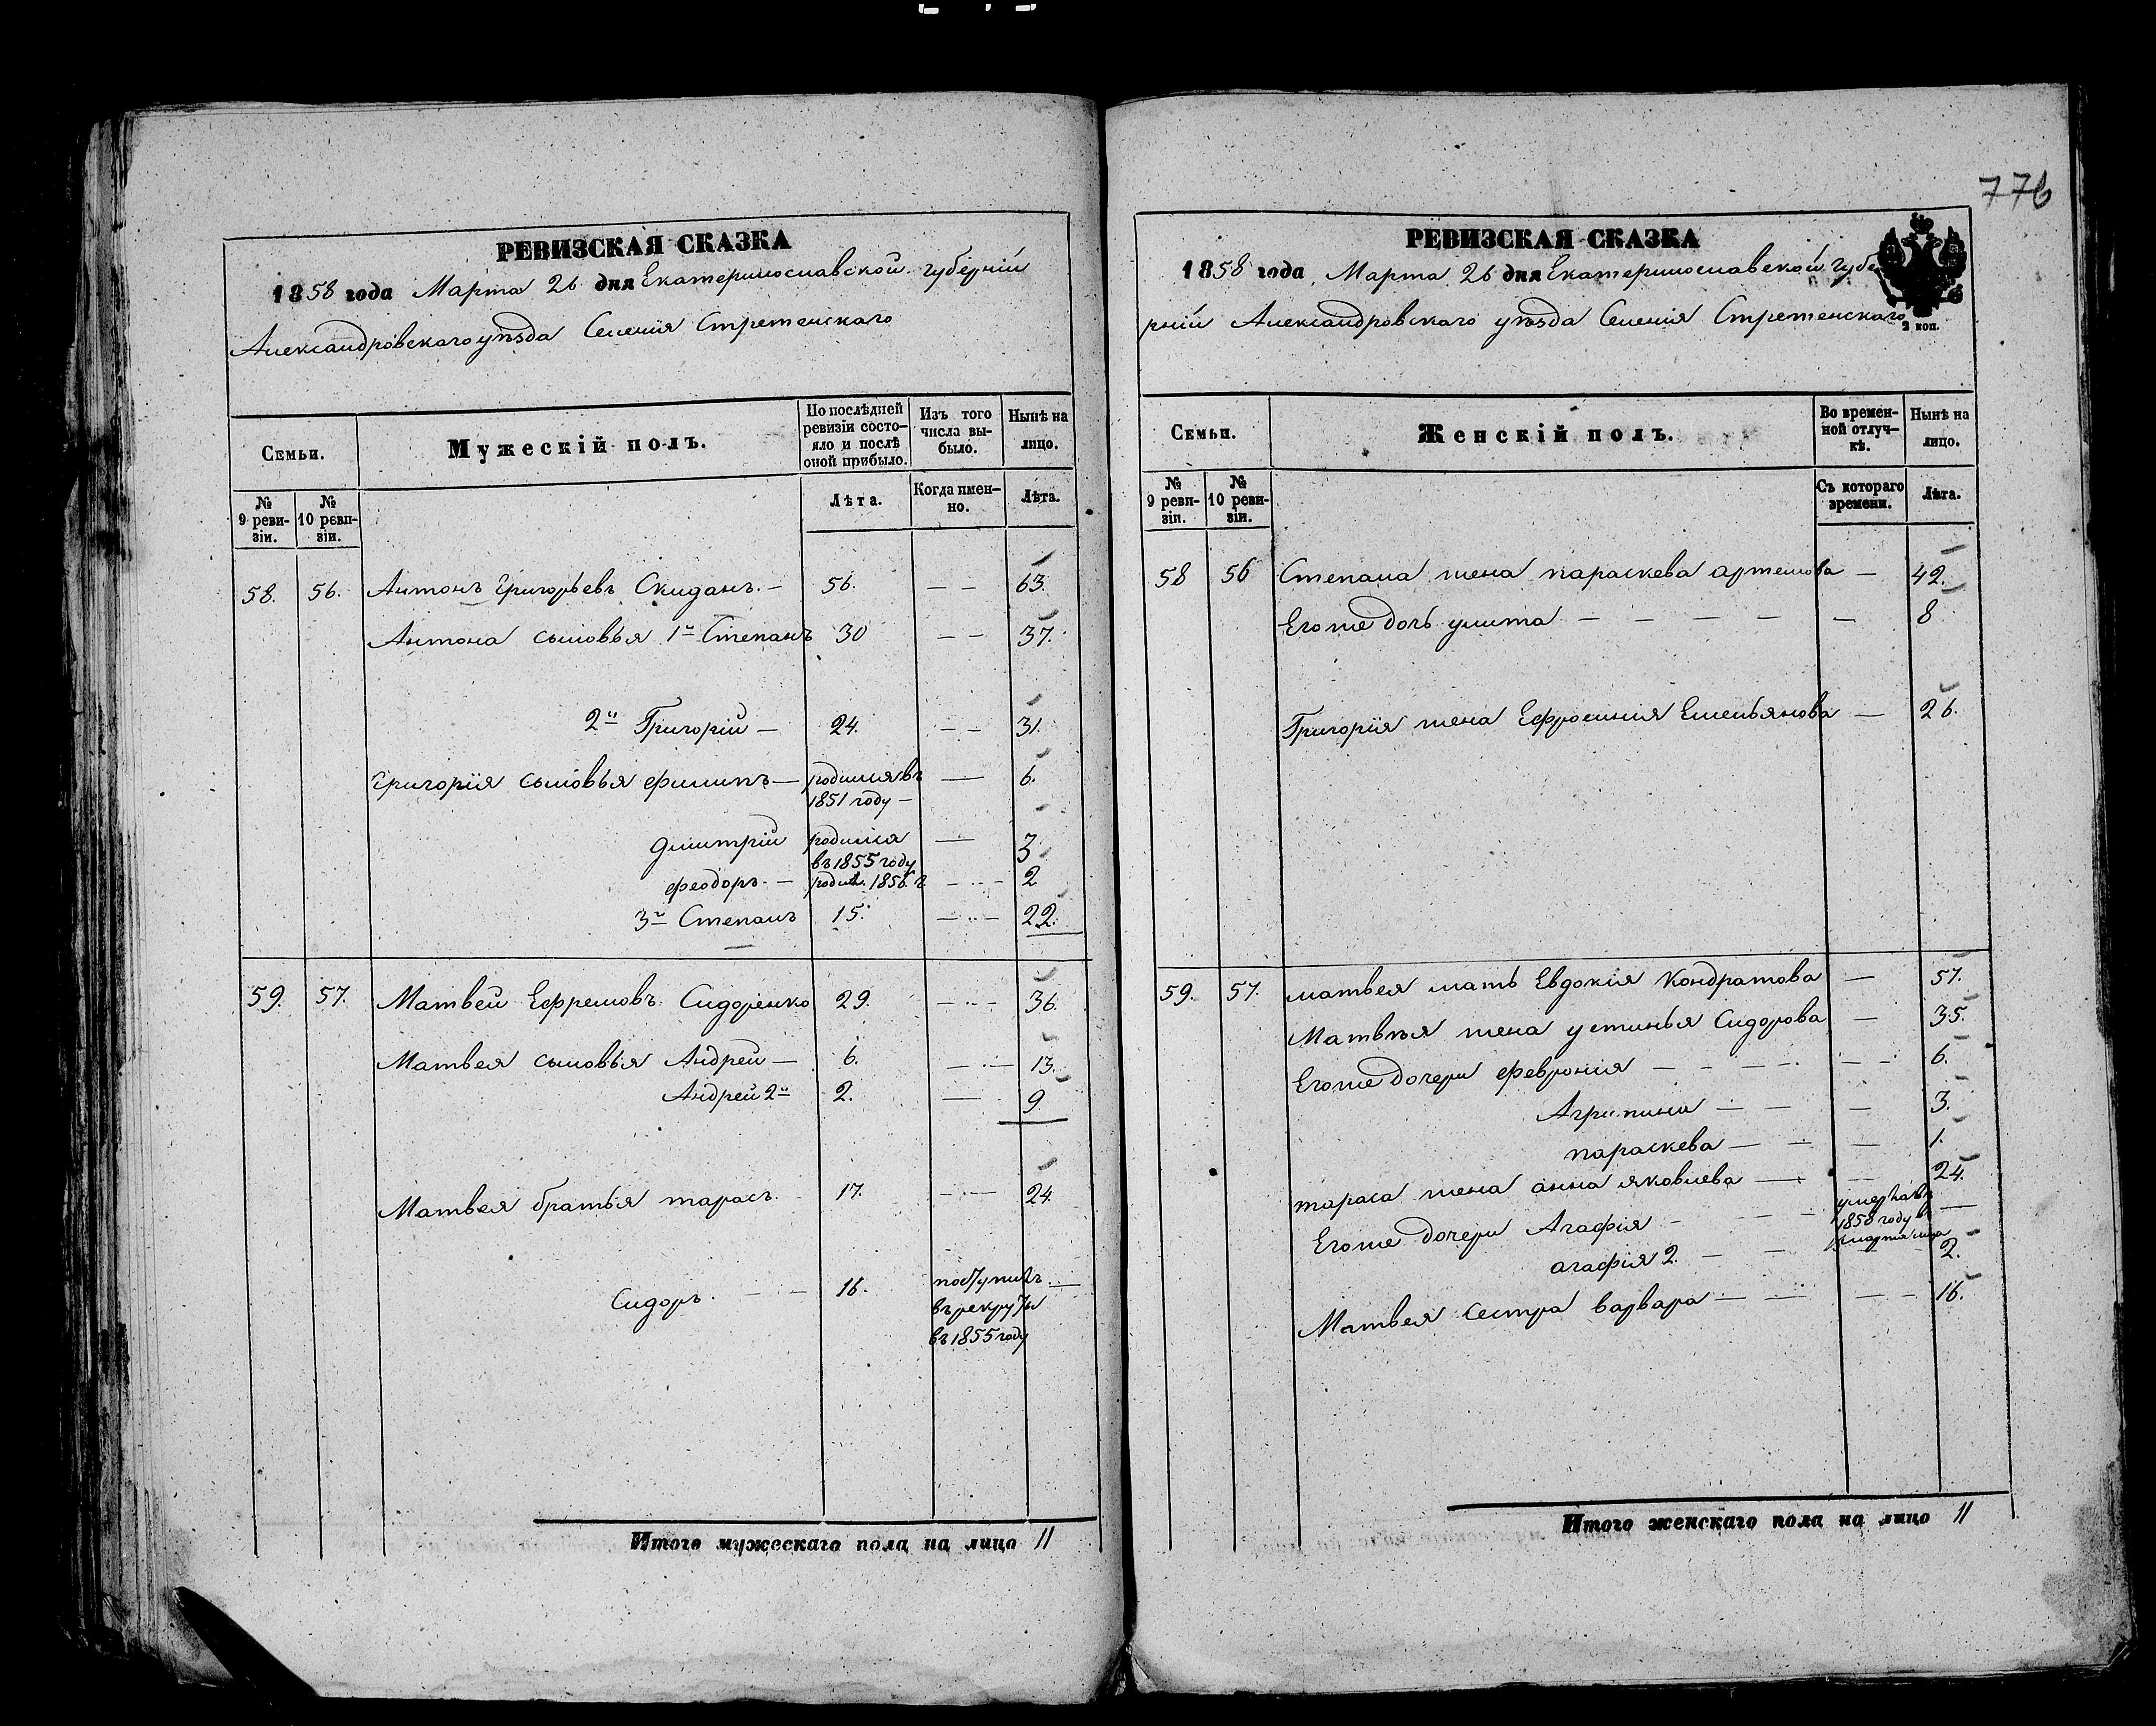 776
РЕВИЗСКАЯ СКАЗКА
1858 года Марта 26 дня Екатеринославской губерніи
Александровскаго уѣзда Селенія Стретенскаго
Семьи.
Мужескій полъ.
По послѣдней ревизіи состо-
яло и послѣ
оной прибыло.
Изъ того
числа вы-
было.
Нынѣ на
лицо.
№
9 реви-
зіи.
№
10 реви-
зіи.
Лѣта.
Когда имен-
но.
Лѣта.
58. 56. Антонъ Григорьевъ Скиданъ. — 56. — — 63.
Антона сыновья 1й Степанъ 30 — — 37.
2й Григорій — 24. — — 31.
Григорія сыновья Филипъ — родился въ — 6.
1851 году —
Дмитрій родился — 3
въ 1855 году
Феодоръ. — родил. 1856. г — — 2
3й Степанъ 15. — — 22.
59. 57. Матвей Ефремовъ Сидоренко 29. — — 36.
Матвея сыновья Андрей — 6. — — 13.
Андрей 2й 2. — 9.
Матвея братья Тарасъ. 17. — — 24.
Сидоръ. — — 16. поступилъ —
въ рекруты
въ 1855 году
Итого мужескаго пола на лицо 11
РЕВИЗСКАЯ СКАЗКА
1858 года Марта 26 дня Екатеринославской губе
рніи Александровскаго уѣзда Селенія Стретенскаго
2 коп.
Семьи.
Женскій полъ.
Во времен-
ной отлуч-
кѣ.
Нынѣ на
лицо.
№
9 реви-
зіи.
№
10 реви-
зіи.
Съ котораго
времени.
Лѣта.
58 56 Степана жена параскева артемова — 42.
Егоже дочь улита — — — — — 8
Григорія жена Ефросинія Емельянова — 26.
59. 57. матвея мать Евдокія Кондратова — 57.
Матвѣя жена устинья Сидорова — 35.
Егоже дочери Феврония — — — — — 6.
Агрипина — — — 3.
параскева — — — 1.
тараса жена анна яковлева — — 24.
Егоже дочери Агафія — — — умерла въ —
1858 году
марта
агафія 2. — — — 2.
Матвея сестра варвара — — — — 16.
Итого женскаго пола на лицо 11